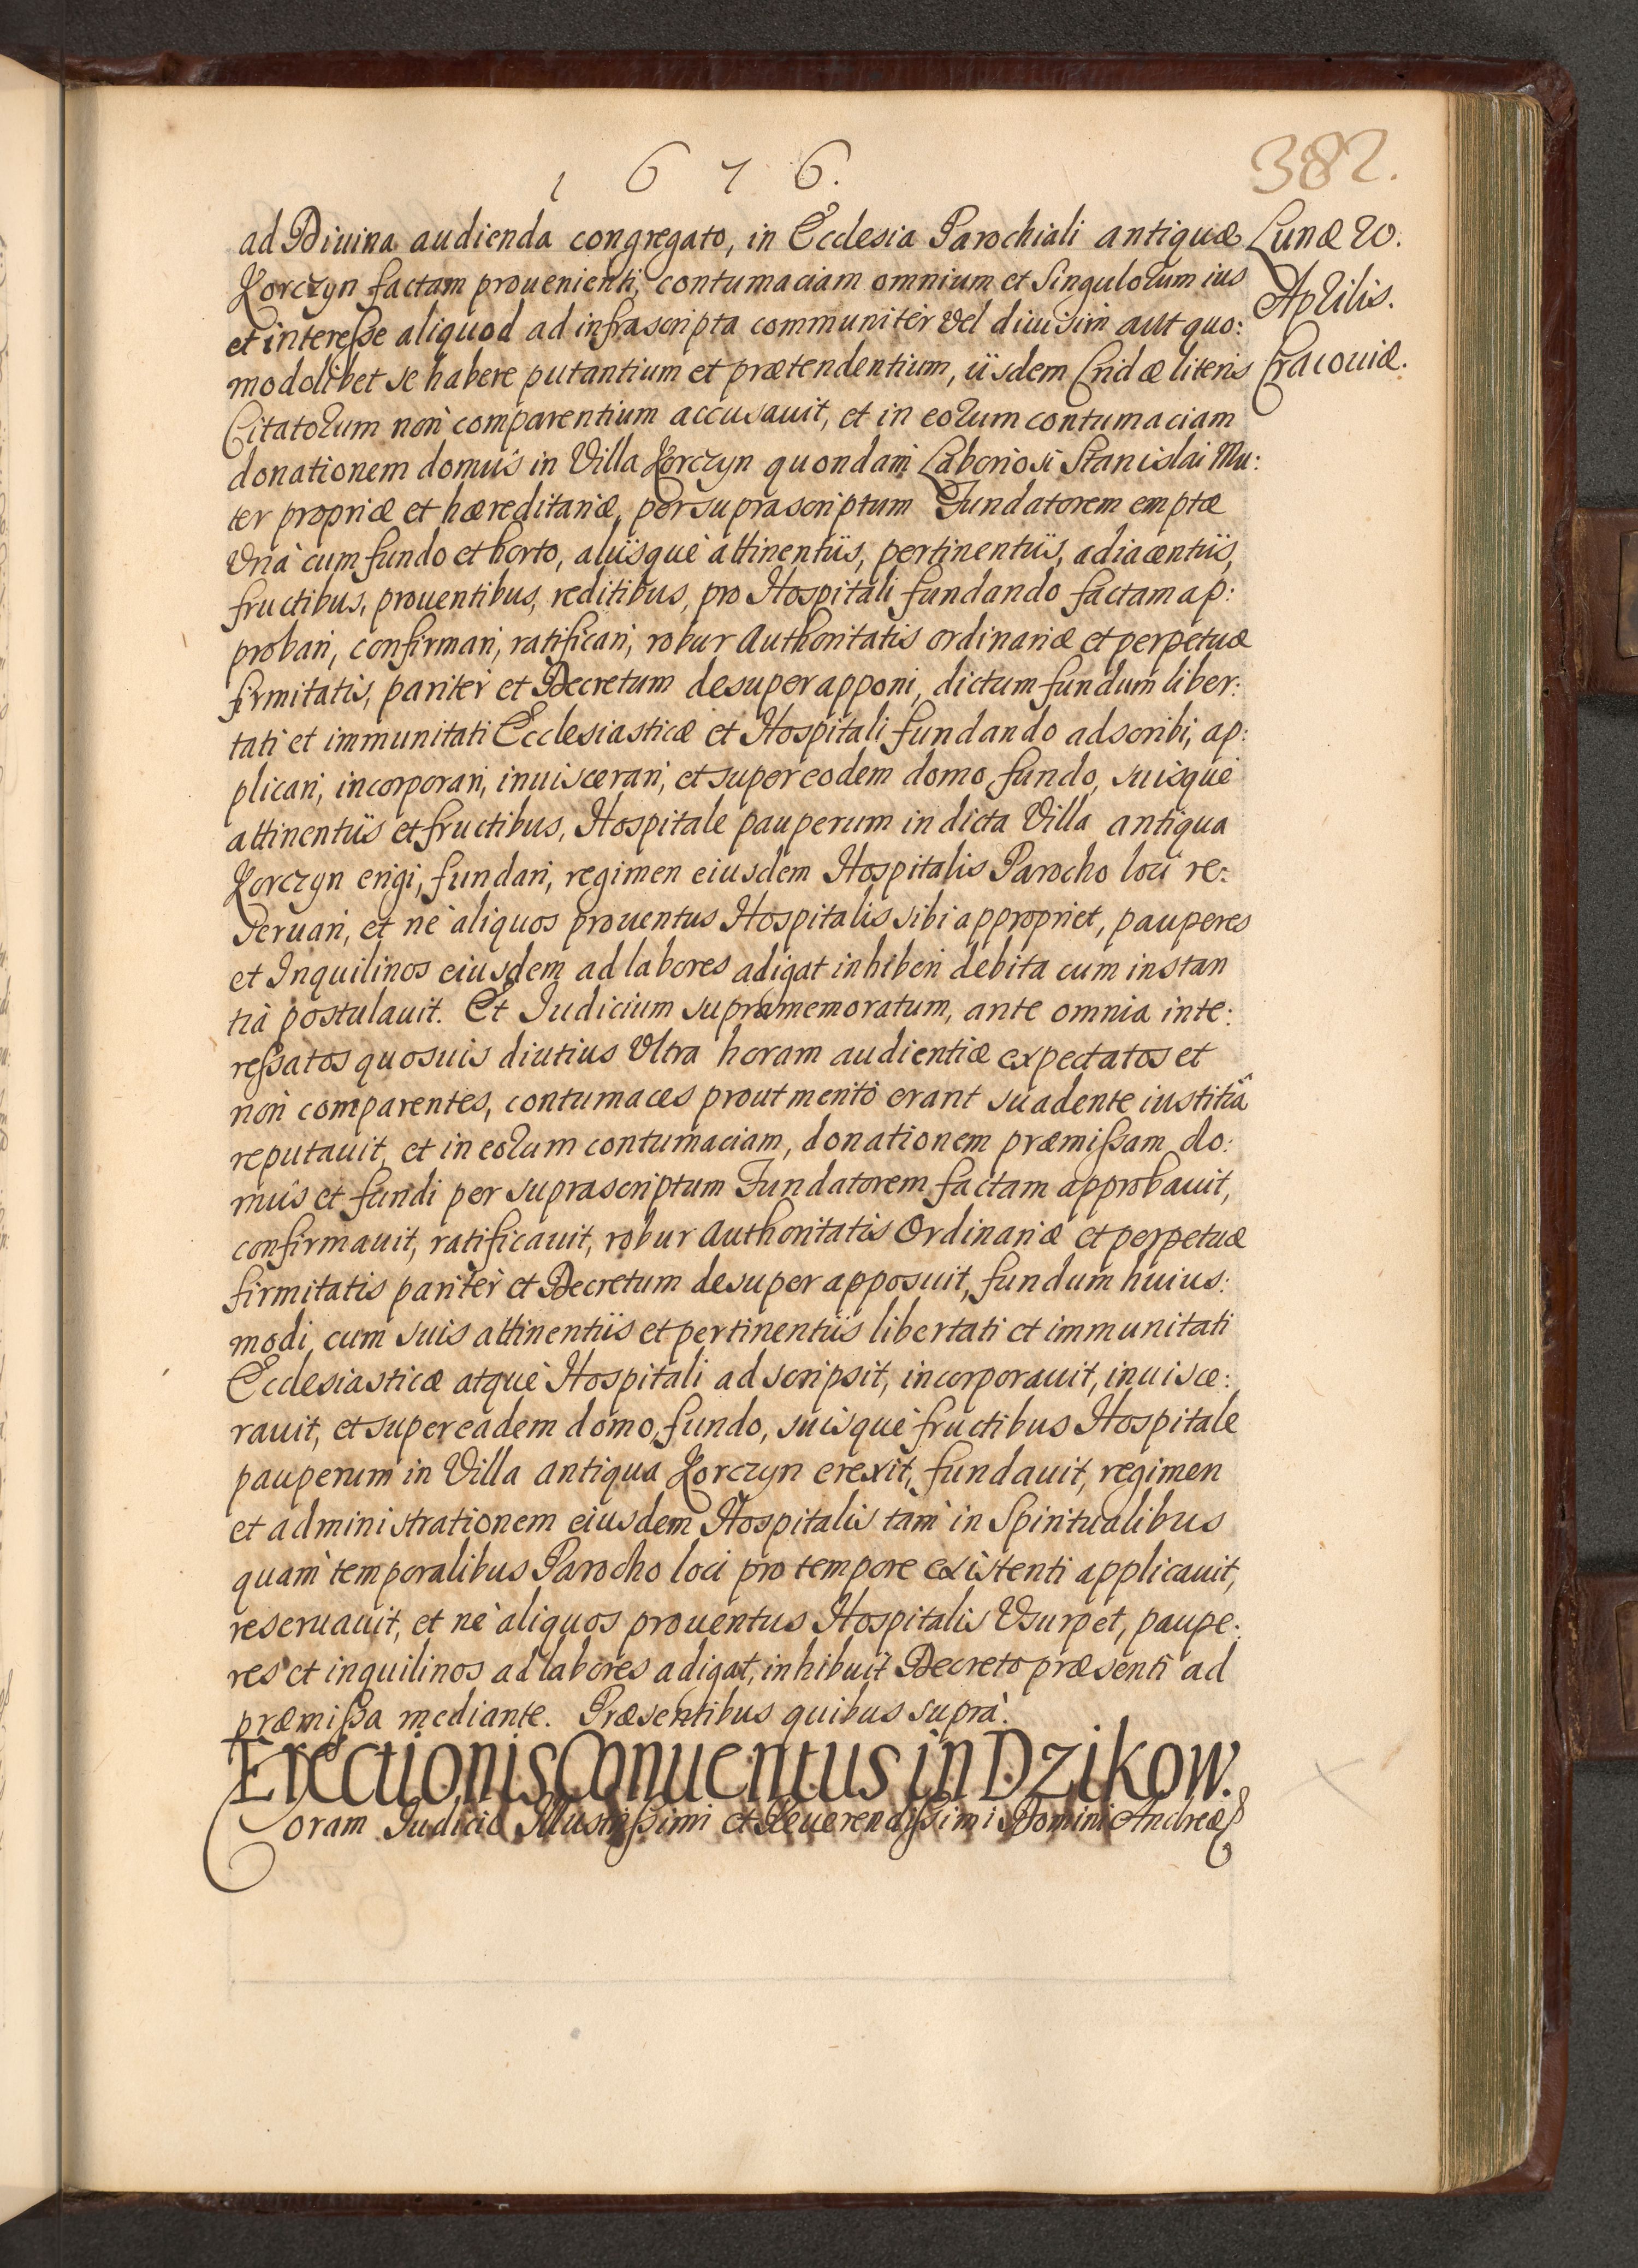 1 6 7 6.
382.
ad Diuina audienda congregato, in Ecclesia Parochiali antiquæ
Korczyn factam prouenienti, contumaciam omnium et singulorum ius
et interesse aliquod ad infrascripta communiter vel diuisim aut quo:
modolibet se habere putantium et prætendentium, iisdem Cridæ literis
Citatorum non comparentium accusauit, et in eorum contumaciam
donationem domus in Villa Korczyn quondam Laboriosi Stanislai Mu:
ter propriæ et hæreditariæ, per suprascriptum Fundatorem emptæ
Vna cum fundo et horto, aliisque attinentiis, pertinentiis, adiacentiis,
fructibus, prouentibus, reditibus, pro Hospitali fundando factam ap:
probari, confirmari, ratificari, robur Authoritatis ordinariæ et perpetuæ
firmitatis, pariter et Decretum desuper apponi, dictum fundum liber:
tati et immunitati Ecclesiasticæ et Hospitali fundando adscribi, ap:
plicari, incorporari, inuiscerari, et super eodem domo, fundo, suisque
attinentiis et fructibus, Hospitale pauperum in dicta Villa antiqua
Korczyn erigi, fundari, regimen eiusdem Hospitalis Parocho loci re:
seruari, et ne aliquos prouentus Hospitalis sibi appropriet, pauperes
et Inquilinos eiusdem ad labores adigat inhiberi debita cum instan
tia postulauit. Et Iudicium supramemoratum, ante omnia inte:
ressatos quosuis diutius Vltra horam audientiæ expectatos et
non comparentes, contumaces prout merito erant suadente iustitiâ
reputauit, et in eorum contumaciam, donationem præmissam do:
mus et fundi per suprascriptum Fundatorem factam approbauit,
confirmauit, ratificauit, robur Authoritatis Ordinariæ et perpetuæ
firmitatis pariter et Decretum desuper apposuit, fundum huius:
modi cum suis attinentiis et pertinentiis libertati et immunitati
Ecclesiasticæ atque Hospitali adscripsit, incorporauit, inuisce:
rauit, et super eadem domo, fundo, suisque fructibus Hospitale
pauperum in Villa antiqua Korczyn erexit, fundauit, regimen
et administrationem eiusdem Hospitalis tam in Spiritualibus
quam temporalibus Parocho loci pro tempore existenti applicauit,
reseruauit, et ne aliquos prouentus Hospitalis Vsurpet, paupe:
res et inquilinos ad labores adigat, inhibuit Decreto præsenti ad
præmissa mediante. Præsentibus quibus suprà.
Erectionis Conuentus in Dzikow.
Coram Iudicio Illustrissimi et Reuerendissimi Domini Andreæ
Lunæ 20.
Aprilis.
Cracouiæ.